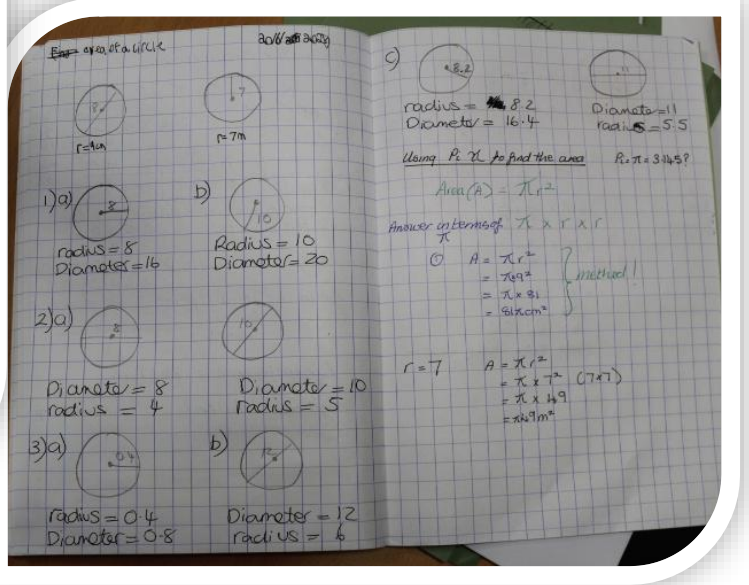 area of a circle
8
7
r=4cm
r=7m
1)a)
8
radius = 8
Diameter = 16
b)
10
Radius = 10
Diameter = 20
2)a)
8
Diameter = 8
radius = 4
10
Diameter = 10
radius = 5
3)a)
0.4
radius = 0.4
Diameter = 0.8
b)
12
Diameter = 12
radius = 6
c)
8.2
radius = 8.2
Diameter = 16.4
11
Diameter = 11
radius = 5.5
Using Pi π to find the area
Pi = π = 3.145?
Area (A) = πr²
Answer in terms of π
π x r x r
① A = πr²
= π×9²
= π × 81
= 81πcm²
method!
r = 7
A = πr²
= π × 7² (7×7)
= π × 49
= π49m²